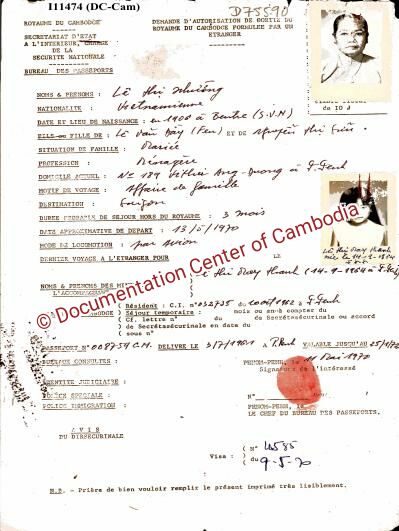 I11474 (DC-Cam)
D75590
ROYAUME DU CAMBODGE
DEMANDE D'AUTORISATION DE SORTIE DU
ROYAUME DU CAMBODGE FORMULEE PAR UN
ETRANGER
SECRETARIAT D'ETAT
A L'INTERIEUR, CHARGE
DE LA
SECURITE NATIONALE
BUREAU DES PASSEPORTS
NOMS & PRENOMS : Lê Thi
NATIONALITE : Vietnamienne
DATE ET LIEU DE NAISSANCE : en 1900 à Bentre (S.V.N)
ELLE ou FILLE DE : Lê Van Bây (Feu) ET DE Nguyên Thi
SITUATION DE FAMILLE : Mariée
PROFESSION : Ménagère
DOMICILE ACTUEL : No 189 Vithei Ang-Duong à P.Penh
MOTIF DE VOYAGE : Affaire de famille
DESTINATION : Saigon
DUREE PROBABLE DE SEJOUR HORS DU ROYAUME : 3 mois
DATE APPROXIMATIVE DE DEPART : 13/5/1970
MODE DE LOCOMOTION : par avion
DERNIER VOYAGE A L'ETRANGER POUR LE
NOMS & PRENOMS DES
L'ACCOMPAGNANT
Thi Thanh (14-9-1964 à
Thanh
née le 14-9-1964
© Documentation Center of Cambodia
Résident : C.I. n° 1962 à P.Penh
Séjour temporaire : mois ou en-compter du
Cf. lettre n° du de Secrétasécurale ou accord
de Secrétasécurale en date du
sous n°
PASSEPORT N° 008754 C.M. DELIVRE LE à P.Penh VALABLE JUSQU'AU
BUREAUX CONSULTES :
PHNOM-PENH, le 11 Mai 1970
Signature de l'intéressé
IDENTITE JUDICIAIRE :
POLICE SPECIALE :
POLICE IMMIGRATION :
N°
PHNOM-PENH, le
LE CHEF DU BUREAU DES PASSEPORTS.
AVIS
DU DIRSECURINALE
Visa : (N° 4585
(du 9-5-70
N.B. - Prière de bien vouloir remplir le présent imprimé très lisiblement.